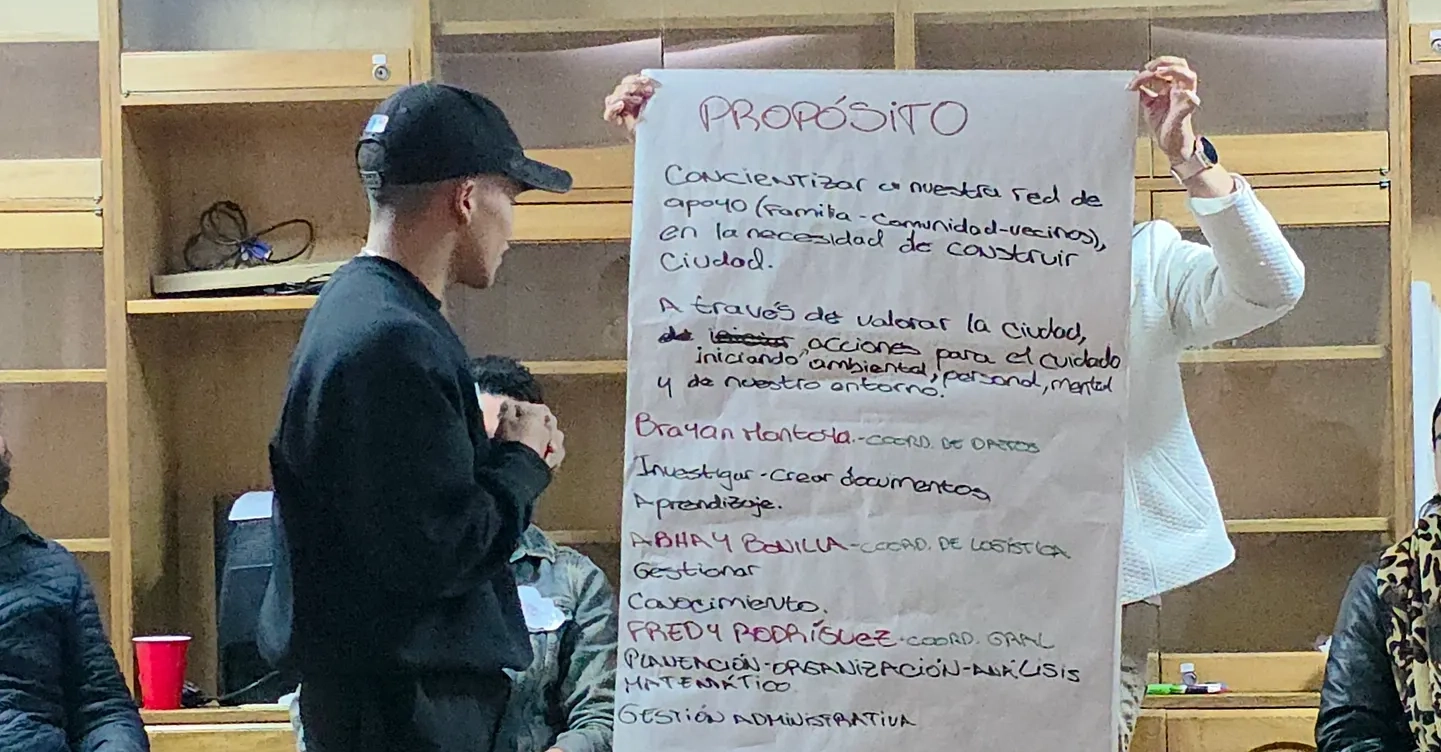 PROPÓSITO
Concientizar a nuestra red de
apoyo (Familia-Comunidad-vecinos),
en la necesidad de construir
Ciudad.
A través de valorar la ciudad,
acciones para el cuidado
iniciando ambiental, personal, mental
y de nuestro entorno.
Brayan Montoya.-COORD. DE DATOS
Investigar-Crear documentos
Aprendizaje.
ABHAY BONILLA-COORD. DE LOGÍSTICA
Gestionar
Conocimiento.
FREDY RODRÍGUEZ-COORD. GRAL
PLANEACIÓN-ORGANIZACIÓN-ANÁLISIS
MATEMÁTICO.
GESTIÓN ADMINISTRATIVA